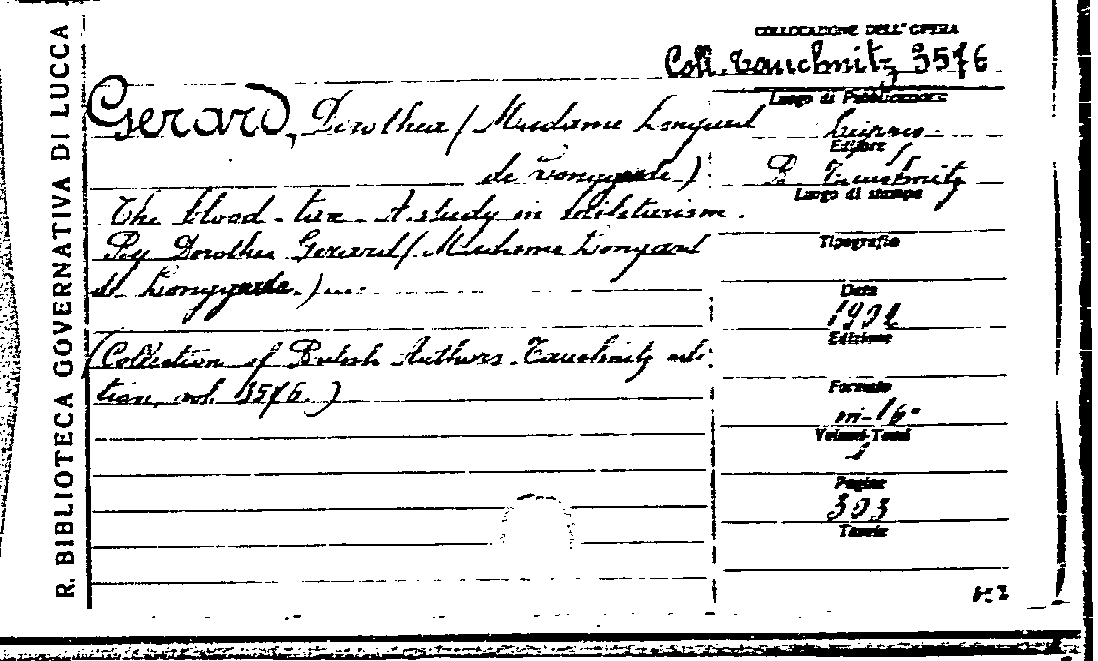 R. BIBLIOTECA GOVERNATIVA DI LUCCA
COLLOCAZIONE DELL'OPERA
Coll. Tauchnitz 3576
Gerard, Dorothea (Madame Longard
de Longgarde)
The blood-tax - A study in militarism.
By Dorothea Gerard (Madame Longard
de Longgarde.)
(Collection of British Authors Tauchnitz edi-
tion, vol. 3576.)
Luogo di Pubblicazione
Leipzig
Editore
B. Tauchnitz
Luogo di stampa
Tipografia
Data
1902
Edizione
Formato
in-16°
Volumi-Tomi
1
Pagine
303
Tavole